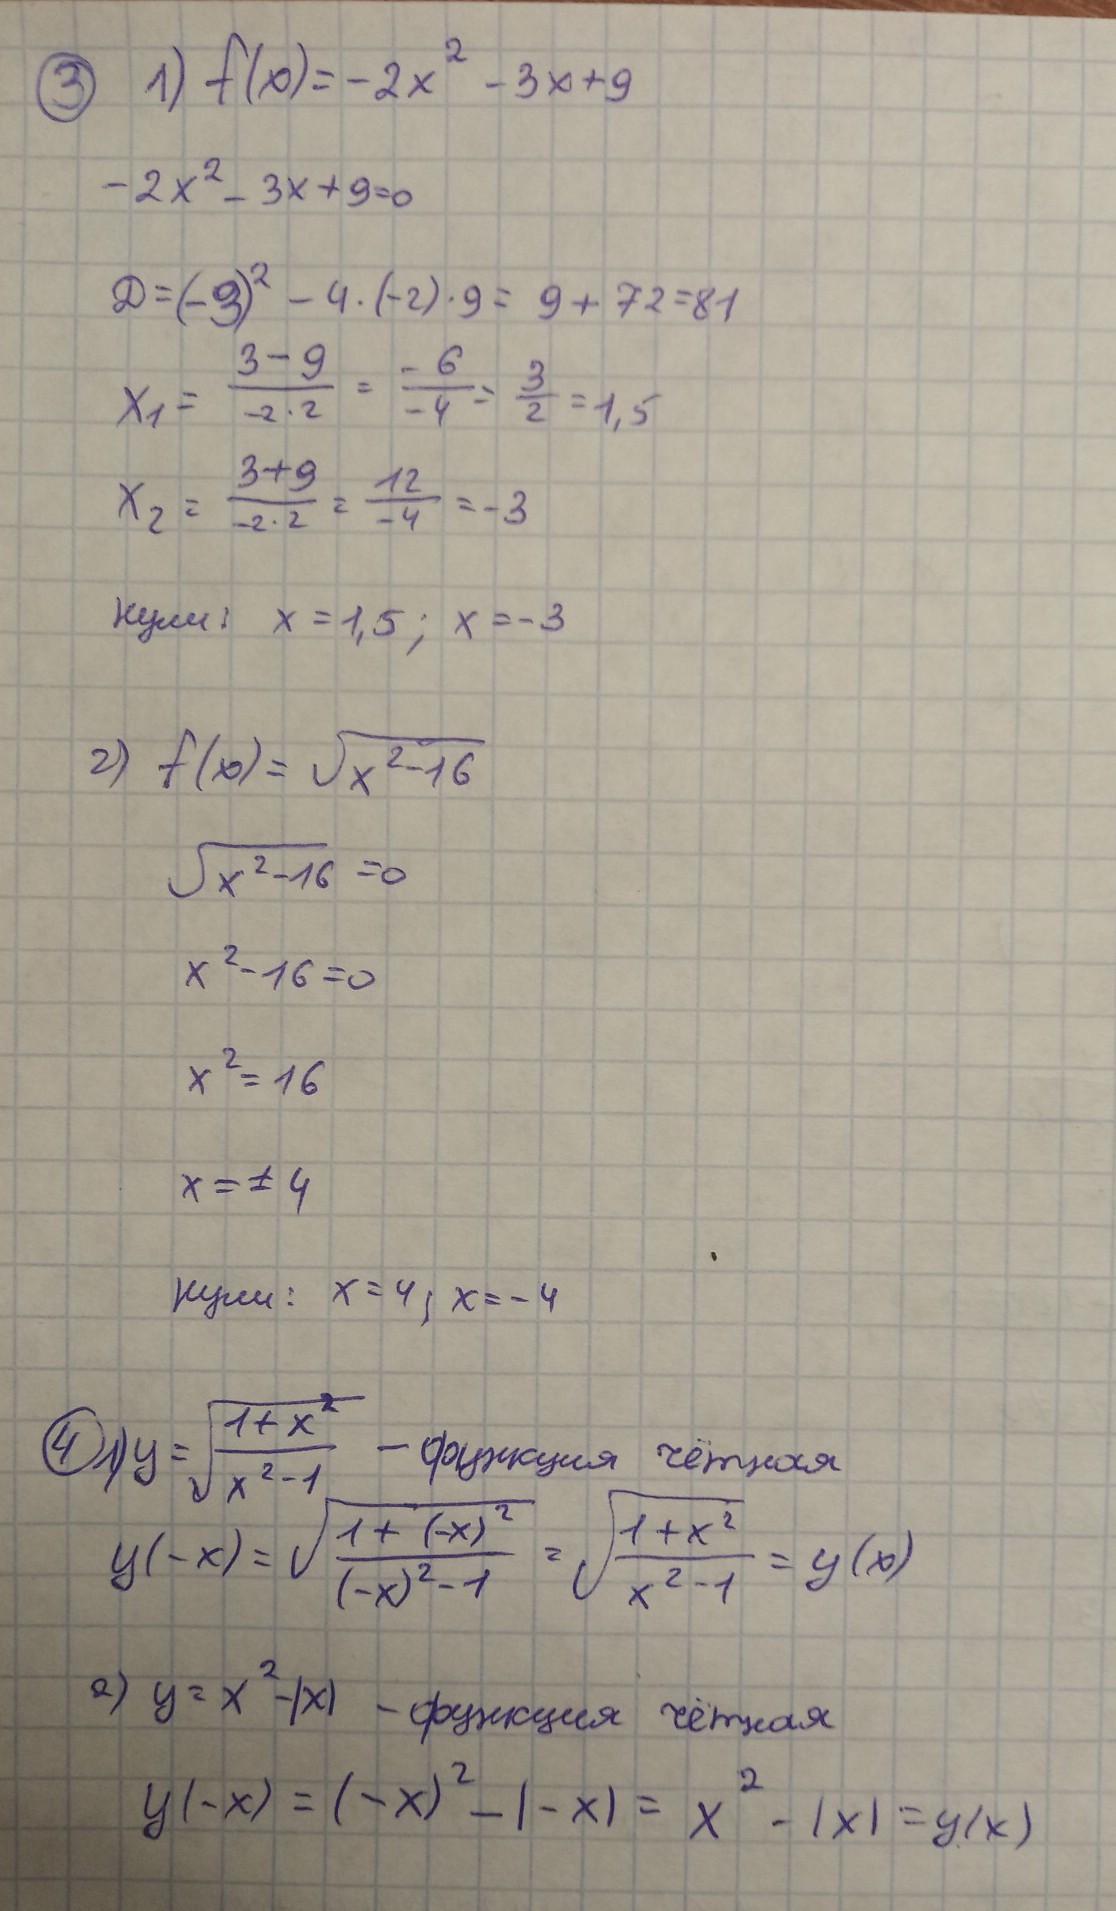 ③ 1) f(x)=-2x²-3x+9
-2x²-3x+9=0
D=(-9)²-4·(-2)·9=9+72=81
x₁=(3-9)/(-2·2)=(-6)/(-4)=3/2=1,5
x₂=(3+9)/(-2·2)=12/(-4)=-3
нули: x=1,5; x=-3
2) f(x)=√(x²-16)
√(x²-16)=0
x²-16=0
x²=16
x=±4
нули: x=4; x=-4
④ 1) y=√((1+x²)/(x²-1)) - функция чётная
y(-x)=√((1+(-x)²)/((-x)²-1))=√((1+x²)/(x²-1))=y(x)
2) y=x²-|x| - функция чётная
y(-x)=(-x)²-|-x|=x²-|x|=y(x)